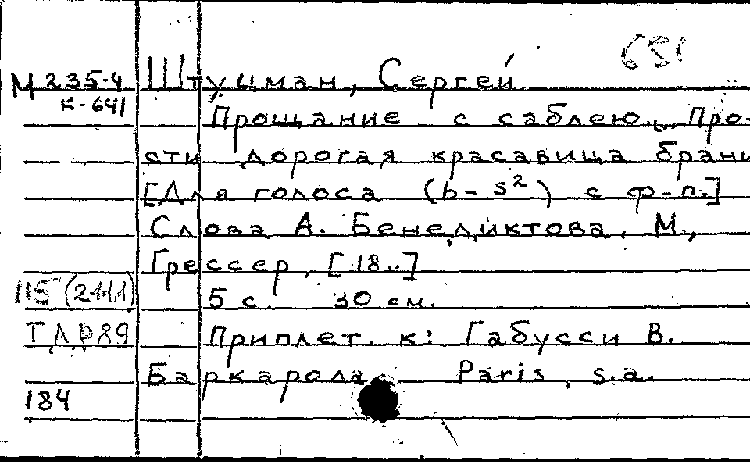 651
М 235-4 Штуцман, Сергей
К-641
Прощание с саблею. Про-
сти дорогая красавица брани
[Для голоса (b-s²) с ф-п.]
Слова А. Бенедиктова. М.,
Грессер, [18..]
115 (2411) 5 с. 30 см.
ТЛР89 Приплет. к: Габусси В.
Баркарола. Paris, s.a.
184